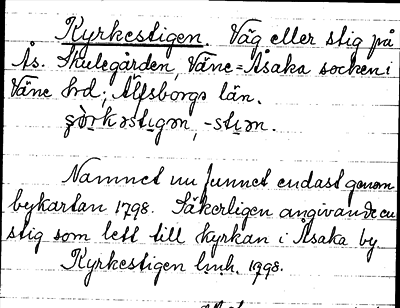 Kyrkestigen. Väg eller stig på
Ås. Skulegården, Väne=Åsaka socken i
Väne hrd; Älfsborgs län.
-stıən.
Namnet nu funnet endast genom
bykartan 1798. Säkerligen angivande en
stig som lett till kyrkan i Åsaka by.
Kyrkestigen lmh. 1798.